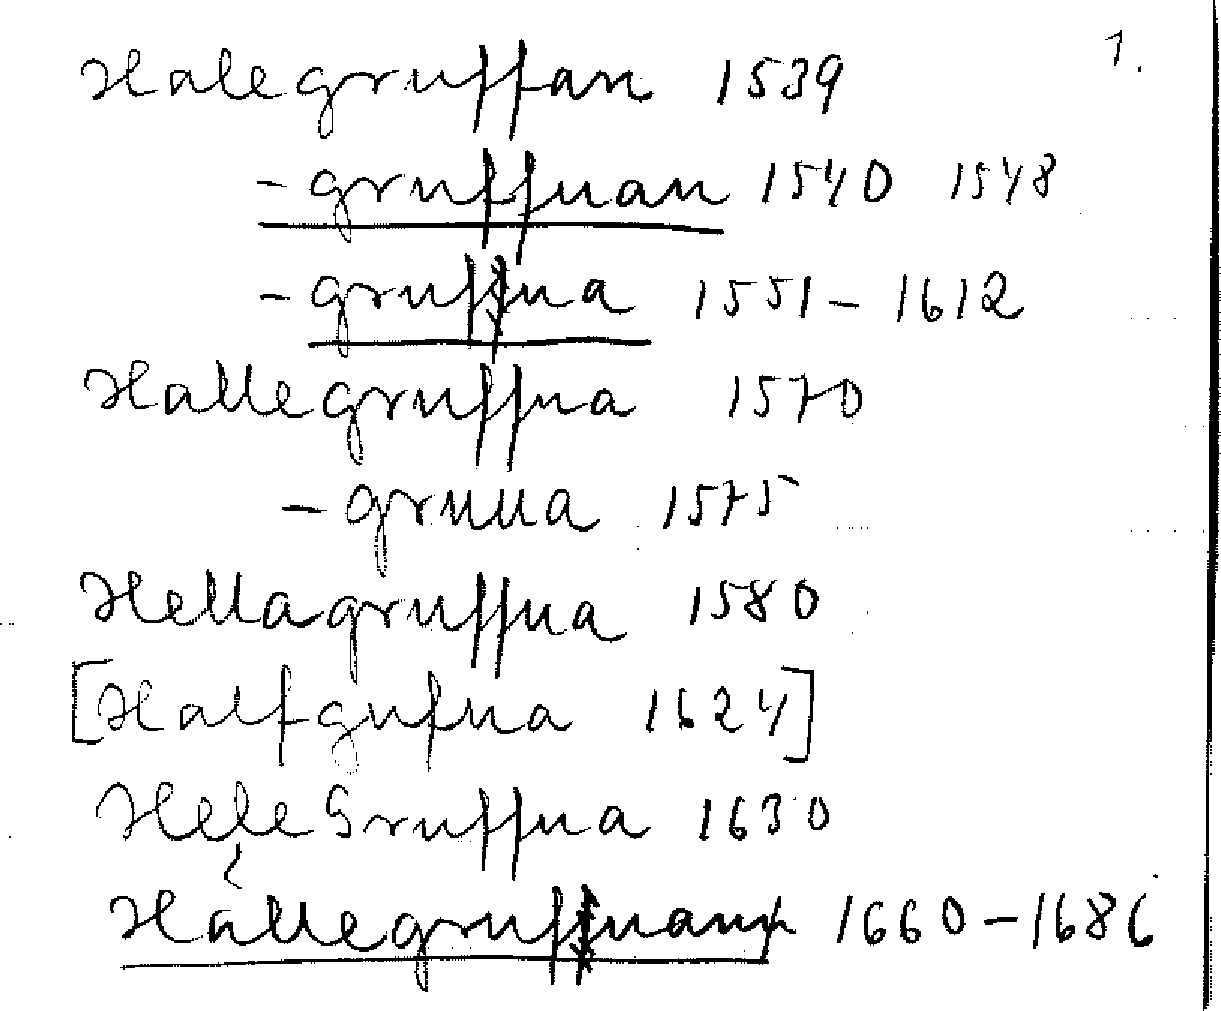 1.
Halegruffan 1539
-gruffuan 1540 1548
-gruffua 1551-1612
Hallegruffua 1570
-gruua 1575
Hellagruffua 1580
[Halfgufua 1624]
HeleGruffua 1630
Hållegruffuan 1660-1686